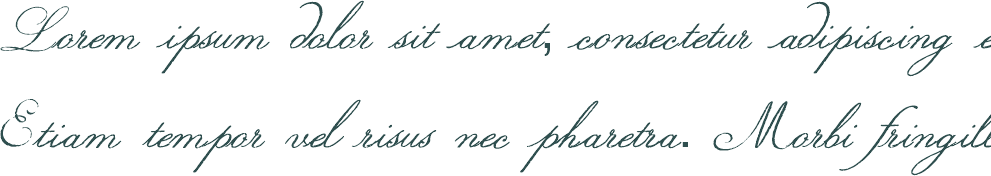 Lorem ipsum dolor sit amet, consectetur adipiscing
Etiam tempor vel risus nec pharetra. Morbi